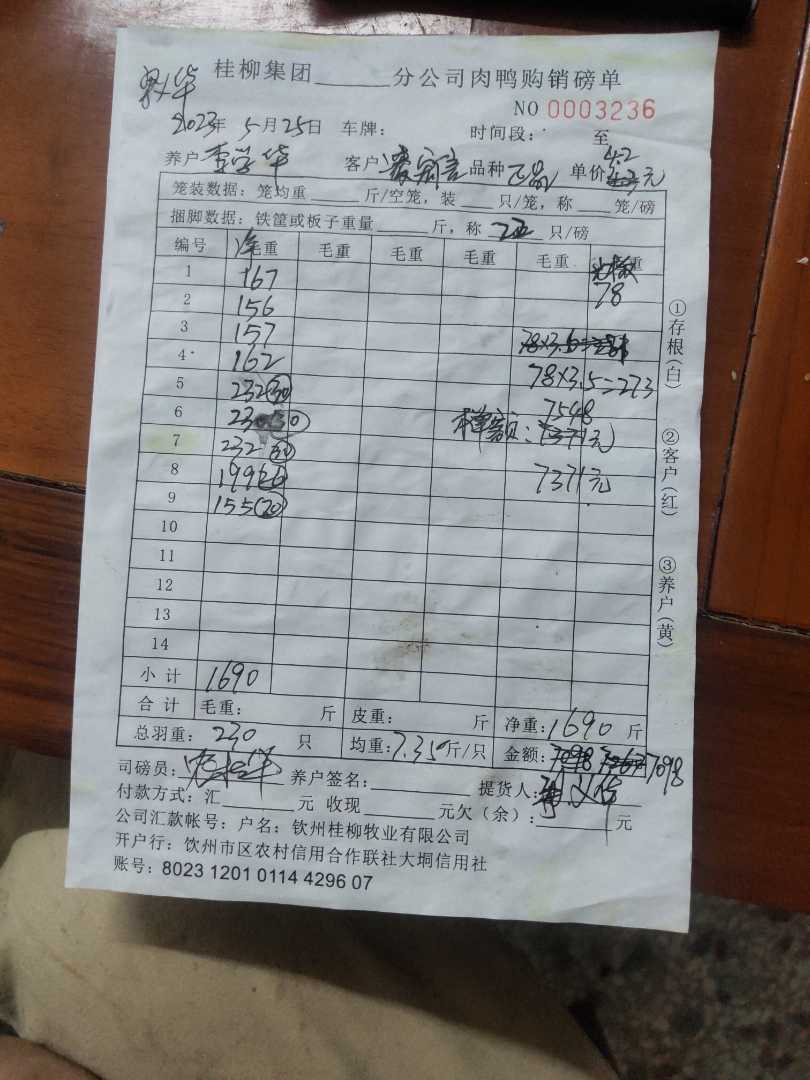 桂柳集团______分公司肉鸭购销磅单
NO 0003236
2023年 5月25日 车牌: 时间段: 至
养户 李学华 客户 品种 正品 单价 4.2 元
笼装数据: 笼均重____斤/空笼, 装___只/笼, 称____笼/磅
捆脚数据: 铁筐或板子重量______斤, 称____只/磅
编号 净重 毛重 毛重 毛重 毛重 重
1 167 78
2 156
3 157
4 162 78×3.5=273
5 232(30)
6 230(30) 7548
7 232(30) 7371元
8 199(26) 7371元
9 155(20)
10
11
12
13
14
小计 1690
合计 毛重: 斤 皮重: 斤 净重: 1690 斤
总羽重: 230 只 均重: 7.35斤/只 金额: 7098
司磅员: 养户签名: 提货人:
付款方式: 汇______元 收现______元欠(余): ______元
公司汇款帐号: 户名: 钦州桂柳牧业有限公司
开户行: 钦州市区农村信用合作联社大垌信用社
账号: 8023 1201 0114 4296 07
①存根(白) ②客户(红) ③养户(黄)